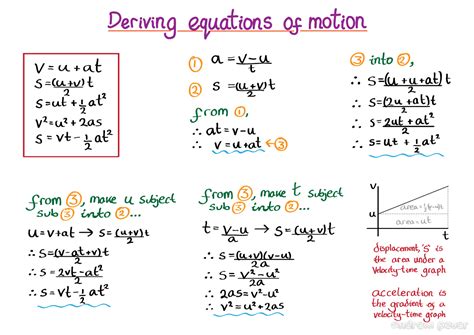 Deriving equations of motion
v = u + at
s = (u+v)t/2
s = ut + 1/2 at²
v² = u² + 2as
s = vt - 1/2 at²
① a = v-u/t
② s = (u+v)t/2
from ①,
∴ at = v-u
∴ v = u+at ← ③
③ into ②,
∴ s = (u + u + at)t/2
∴ s = (2u + at)t/2
∴ s = 2ut + at²/2
∴ s = ut + 1/2 at²
from ③, make u subject
sub ③ into ②...
u = v-at → s = (u+v)t/2
∴ s = (v-at+v)t/2
∴ s = 2vt - at²/2
∴ s = vt - 1/2 at²
from ③, make t subject
sub ③ into ②...
t = v-u/a → s = (u+v)t/2
∴ s = (u+v)(v-u)/2a
∴ s = v²-u²/2a
∴ 2as = v²-u²
∴ v² = u² + 2as
v
u
area = ut
t
displacement, 's' is
the area under a
velocity-time graph
acceleration is
the gradient of a
velocity-time graph